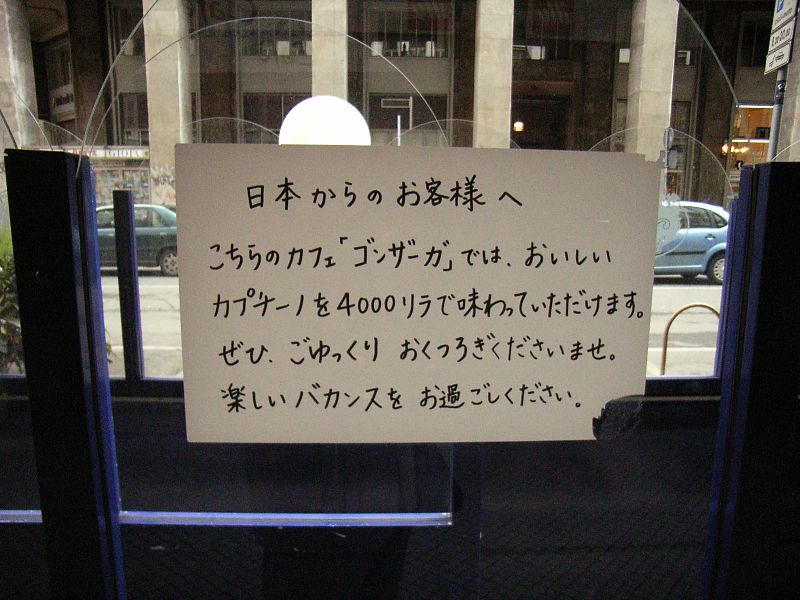 日本からのお客様へ
こちらのカフェ「ゴンザーガ」では、おいしい
カプチーノを4000リラで味わっていただけます。
ぜひ、ごゆっくり おくつろぎくださいませ。
楽しいバカンスを お過ごしください。